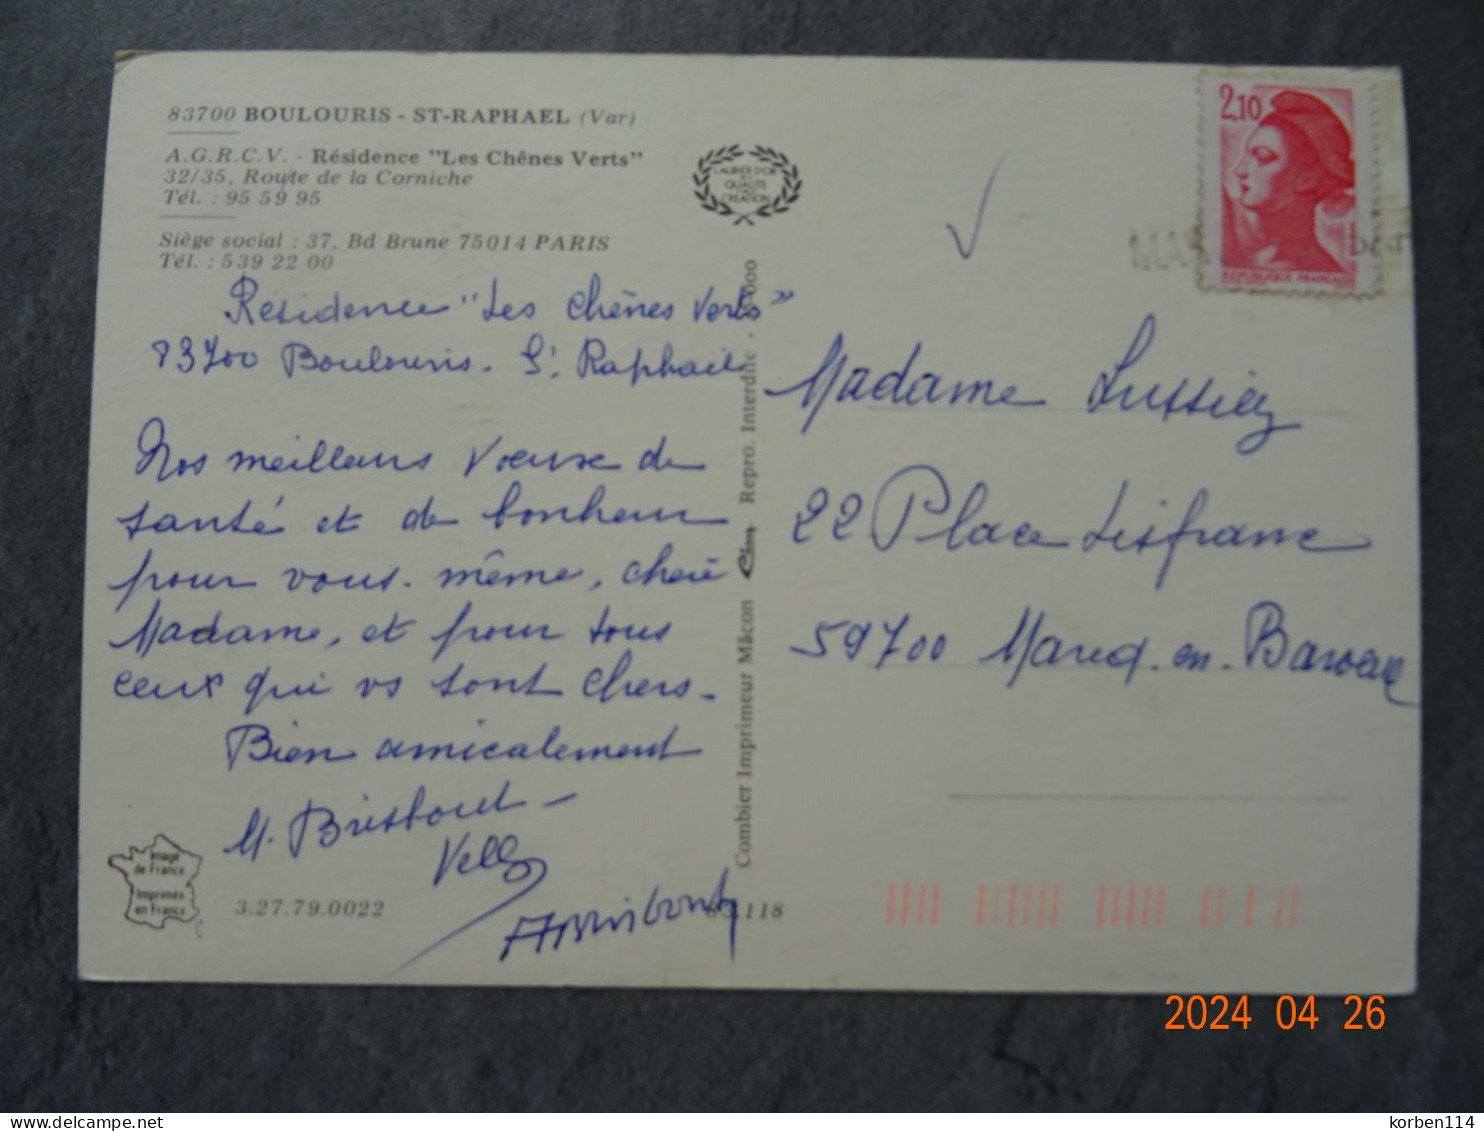 83700 BOULOURIS - ST-RAPHAEL (Var)
A.G.R.C.V. - Résidence "Les Chênes Verts"
32/35, Route de la Corniche
Tél. : 95 59 95
Siège social : 37, Bd Brune 75014 PARIS
Tél. : 539 22 00
Résidence "Les Chênes Verts"
83700 Boulouris - St Raphaël
Nos meilleurs voeux de
santé et de bonheur
pour vous-même, chère
Madame, et pour tous
ceux qui vs sont chers -
Bien amicalement
M.
Image
de France
Imprimée
en France
3.27.79.0022
83.118
LAURIER D'OR
QUALITE
CREATION
Combier Imprimeur Mâcon Cim Repro. Interdite -
2,10
REPUBLIQUE FRANCAISE
Madame Lussiez
22 Place Lisfranc
59700 Marcq-en-Baroeul
2024 04 26
korben114